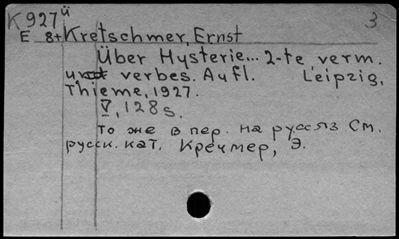 K 927 ü 3
E 8+ Kretschmer, Ernst
Über Hysterie... 2-te, verm.
und verbes. Aufl. Leipzig,
Thieme, 1927.
V, 128 s.
То же в пер. на русс яз См.
русск. кат. Кречмер, Э.